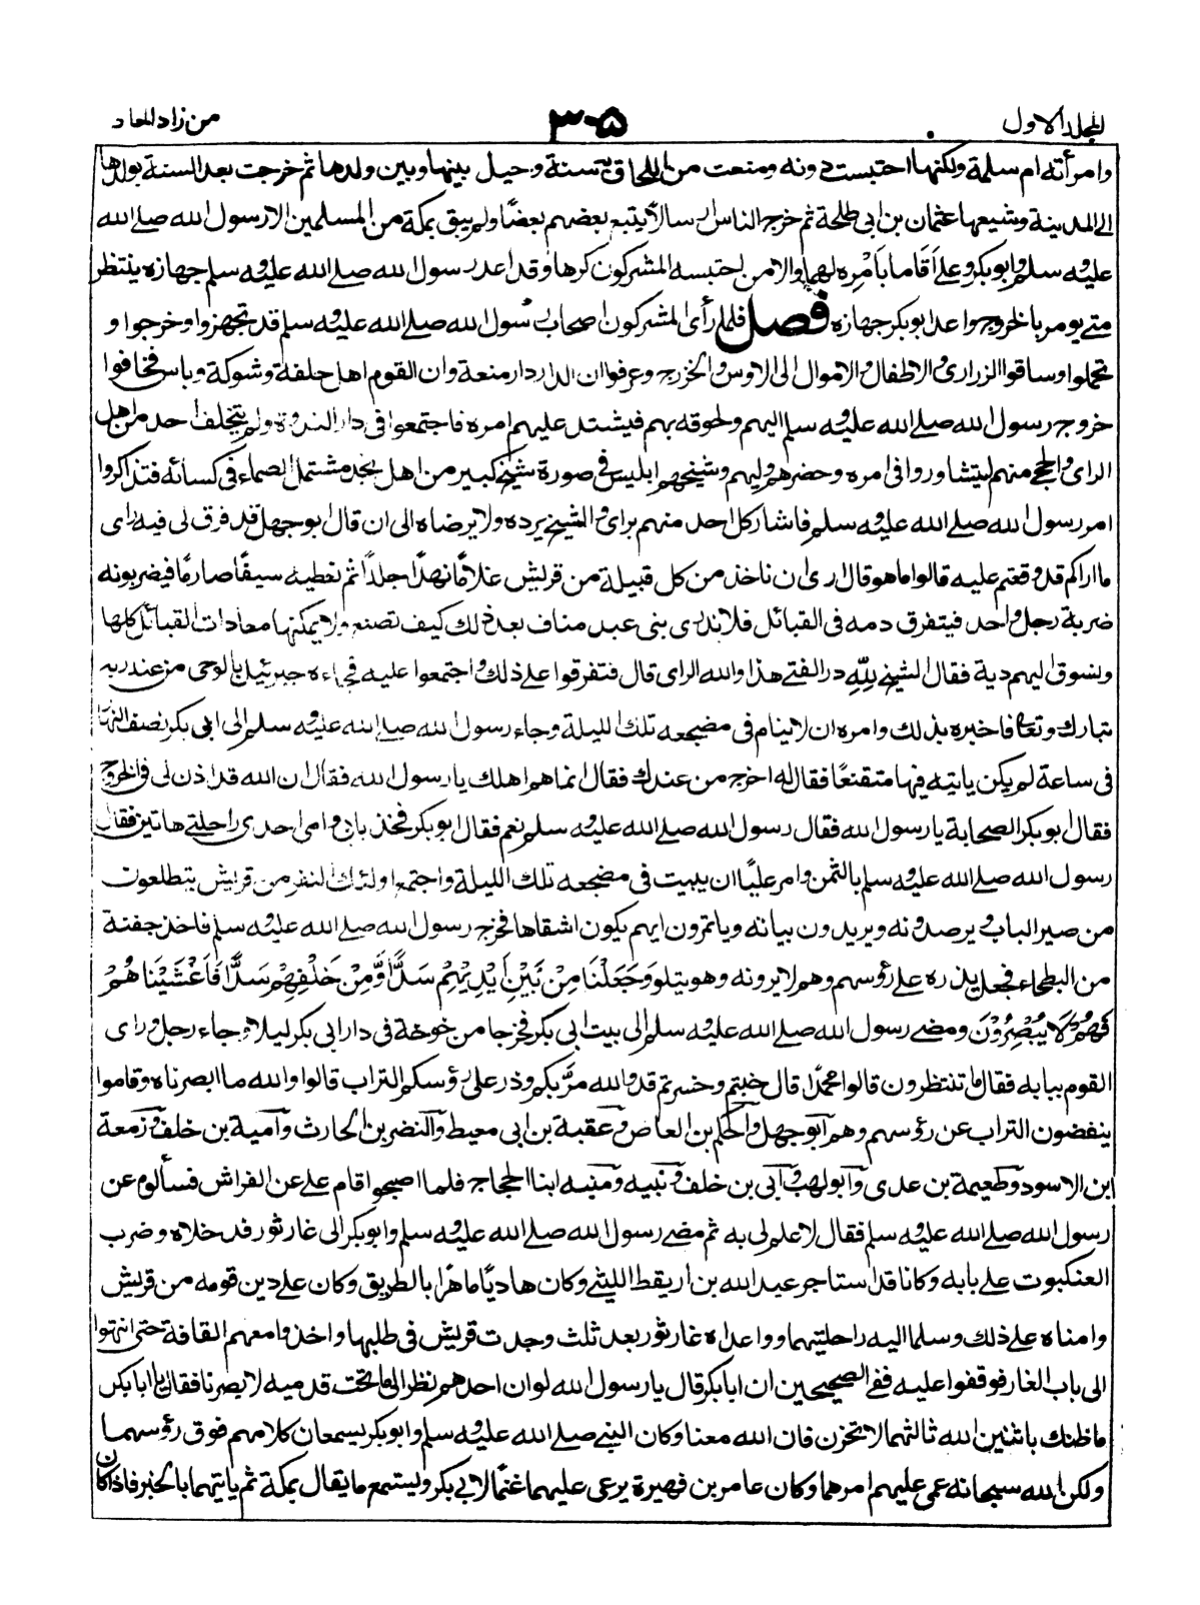 المجلد الاول
٣٠٥
من زاد المعاد
وامرأته ام سلمة ولكنها احتبست دونه ومنعت من اللحاق به سنة وحيل بينها وبين ولدها ثم خرجت بعد السنة بولدها
الى المدينة وشيعها عثمان بن ابى طلحة ثم خرج الناس ارسالا يتبع بعضهم بعضًا ولم يبق بمكة من المسلمين الا رسول الله صلى الله
عليه وسلم وابو بكر وعلى اَقَاما بِاَمْرِه لهما والا من احتبسه المشركون كرها وقد اعد رسول الله صلى الله عليه وسلم جهازه ينتظر
متى يومر بالخروج واعد ابو بكر جهازه فصل فلما رأى المشركون اصحاب رسول الله صلى الله عليه وسلم قد تجهزوا وخرجوا و
تحملوا وساقوا الزرارى والاطفال والاموال الى الاوس والخزرج وعرفوا ان الدار دار منعة وان القوم اهل حلقة وشوكة وباس فخافوا
خروج رسول الله صلى الله عليه وسلم اليهم ولحوقه بهم فيشتد عليهم امره فاجتمعوا فى دار الندوة ولم يتخلف احد من اهل
الراى والحجى منهم ليتشاوروا فى امره وحضرهم وليهم وشيخهم ابليس فى صورة شيخ كبير من اهل نجد مشتمل الصماء فى كسائه فتذاكروا
امر رسول الله صلى الله عليه وسلم فاشار كل احد منهم براى والشيخ يرده ولا يرضاه الى ان قال ابو جهل قد فرق لى فيه راى
ما اراكم قد وقعتم عليه قالوا ما هو قال ارى ان ناخذ من كل قبيلة من قريش غلامًا نهدًا جلدًا ثم نعطيه سيفًا صارمًا فيضربونه
ضربة رجل واحد فيتفرق دمه فى القبائل فلا تدرى بنى عبد مناف بعد ذلك كيف تصنع ولا يمكنها معادات القبائل كلها
ونسوق اليهم دية فقال الشيخ لِلّٰهِ در الفتى هذا والله الراى قال فتفرقوا على ذلك واجتمعوا عليه فجاءه جبرئيل بالوحى من عند ربه
تبارك وتعالى فاخبره بذلك وامره ان لا ينام فى مضجعه تلك الليلة وجاء رسول الله صلى الله عليه وسلم الى ابى بكر نصف النهار
فى ساعة لم يكن ياتيه فيها متقنعًا فقال له اخرج من عندك فقال انما هم اهلك يا رسول الله فقال ان الله قد اذن لى فى الخروج
فقال ابو بكر الصحابة يا رسول الله فقال رسول الله صلى الله عليه وسلم نعم فقال ابو بكر فخذ بابى وامى احدى راحلتى هاتين فقال
رسول الله صلى الله عليه وسلم بالثمن وامر عليًا ان يبيت فى مضجعه تلك الليلة واجتمع اولئك النفر من قريش يتطلعون
من صير الباب ويرصدونه ويريدون بياته وياتمرون ايهم يكون اشقاها فخرج رسول الله صلى الله عليه وسلم فاخذ حفنة
من البطحاء فجعل يذره على رؤسهم وهم لا يرونه وهو يتلو وَجَعَلْنَا مِنْ بَيْنِ اَيْدِيْهِمْ سَدًّا وَّمِنْ خَلْفِهِمْ سَدًّا فَاَغْشَيْنَا هُمْ
فَهُمْ لَا يُبْصِرُوْنَ ومضى رسول الله صلى الله عليه وسلم الى بيت ابى بكر فخرجا من خوخة فى دار ابى بكر ليلا وجاء رجل وراى
القوم ببابه فقال ما تنتظرون قالوا محمدًا قال خبتم وخسرتم قد والله مرَّ بكم وذر على رؤسكم التراب قالوا والله ما ابصرناه وقاموا
ينفضون التراب عن رؤسهم وهم ابو جهل والحكم بن العاص وعقبة بن ابى معيط والنضر بن الحارث وامية بن خلف وزمعة
ابن الاسود وطعيمة بن عدى وابو لهب وابى بن خلف ونبيه ومنبه ابنا الحجاج فلما اصبحوا قام على عن الفراش فسألوه عن
رسول الله صلى الله عليه وسلم فقال لا علم لى به ثم مضى رسول الله صلى الله عليه وسلم وابو بكر الى غار ثور فدخلاه وضرب
العنكبوت على بابه وكانا قد استاجر عبد الله بن اريقط الليثى وكان هاديًا ماهرًا بالطريق وكان على دين قومه من قريش
وامناه على ذلك وسلما اليه راحلتيهما وواعداه غار ثور بعد ثلث وجدت قريش فى طلبها واخذوا معهم القافة حتى انتهوا
الى باب الغار فوقفوا عليه ففى الصحيحين ان ابا بكر قال يا رسول الله لو ان احدهم نظر الى ما تحت قدميه لابصرنا فقال يا ابا بكر
ما ظنك باثنين الله ثالثهما لا تحزن فان الله معنا وكان النبى صلى الله عليه وسلم وابو بكر يسمعان كلامهم فوق رؤسهما
ولكن الله سبحانه عمى عليهم امرهما وكان عامر بن فهيرة يرعى عليهما غنمًا لابى بكر ويستمع ما يقال بمكة ثم ياتيهما بالخبر فاذا كان